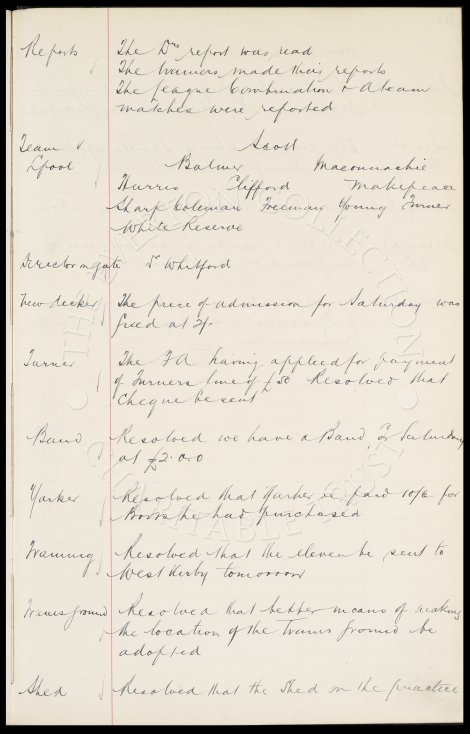 Reports The Drs report was read
The trainers made their reports
The League Combination & A team
matches were reported
Team v Scott
Lpool Balmer Maconnachie
Harris Clifford Makepeace
Sharp Coleman Freeman Young Turner
White Reserve
Director on gate Dr Whitford
The price of admission for Saturday was
fixed at 2/-
Turner The FA having applied for payment
of Turners fine of £50 Resolved that
cheque be sent
Band Resolved we have a Band for Saturday
at £2.0.0
Yarker Resolved that Yarker be paid 10/6 for
Boots he had purchased
Training Resolved that the eleven be sent to
West Kirby tomorrow
Trains ground Resolved that better means of making
the location of the Trains ground be
adopted
Shed Resolved that the Shed on the practice
THE EVERTON COLLECTION
CHARITABLE TRUST